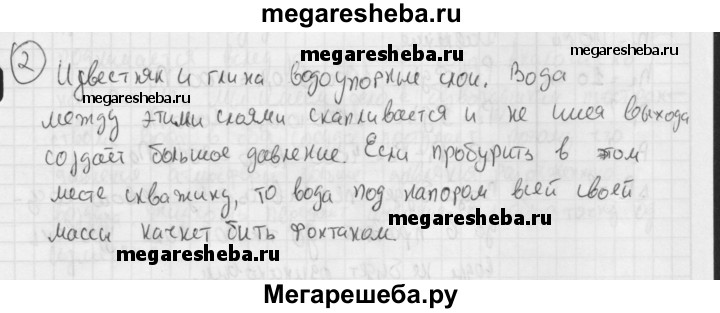 megaresheba.ru
2 Известняк и глина водоупорные слои. Вода
megaresheba.ru
megaresheba.ru
megaresheba.ru
между этими слоями скапливается и не имея выхода
создаёт большое давление. Если пробурить в этом
месте скважину, то вода под напором всей своей
megaresheba.ru
массы качнет бить фонтаном.
megaresheba.ru
Мегарешеба.ру